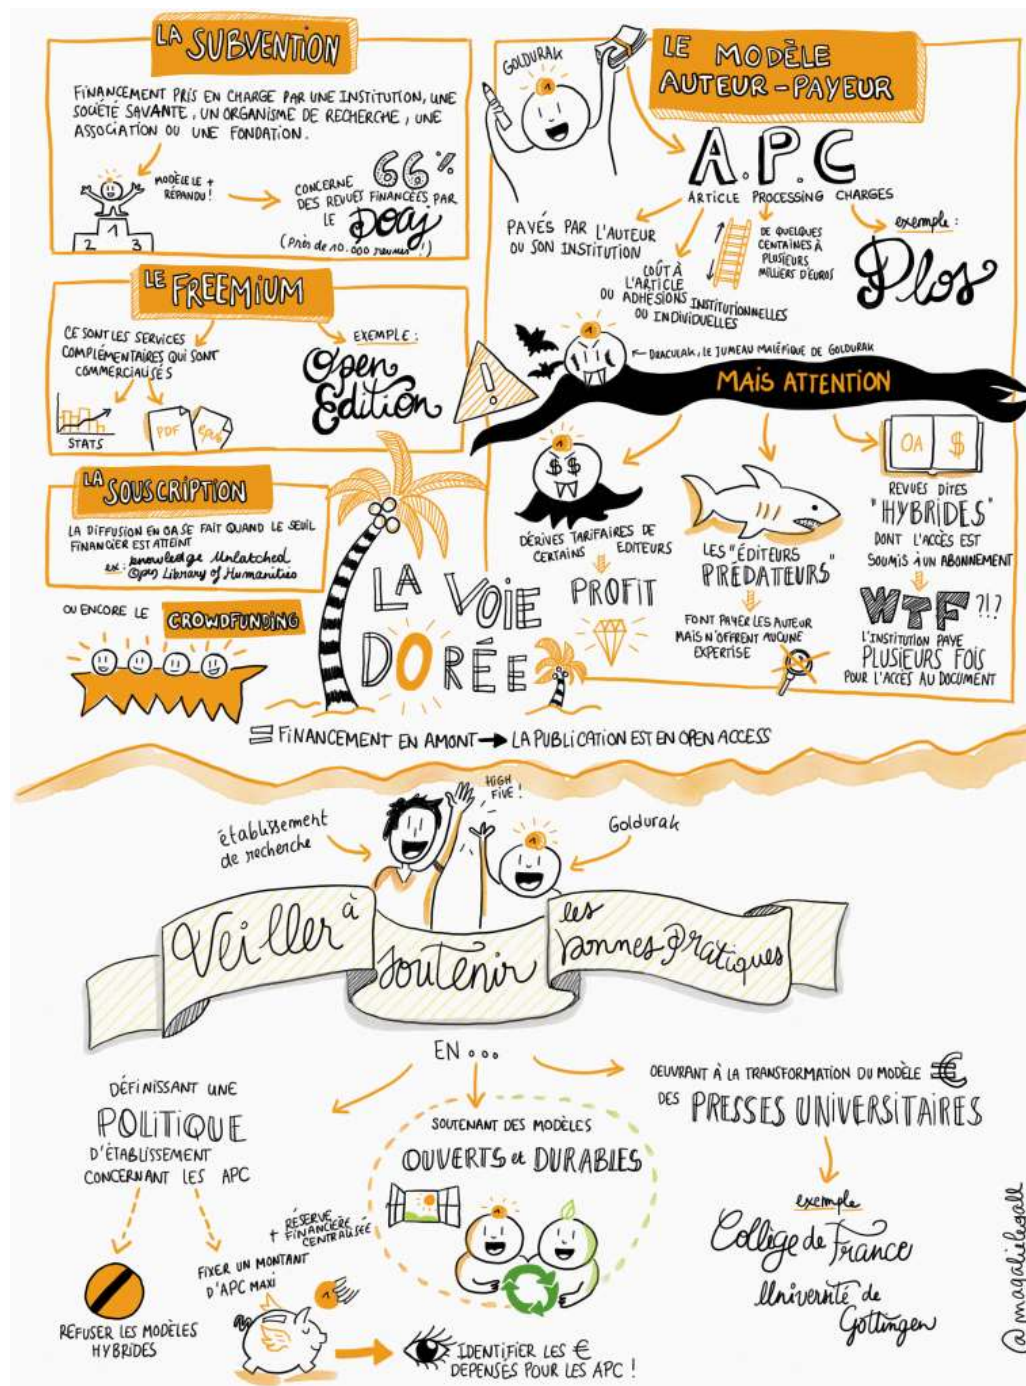 LA SUBVENTION
FINANCEMENT PRIS EN CHARGE PAR UNE INSTITUTION, UNE
SOCIÉTÉ SAVANTE, UN ORGANISME DE RECHERCHE, UNE
ASSOCIATION OU UNE FONDATION.
MODÈLE LE +
RÉPANDU !
1
2 3
CONCERNE 66%
DES REVUES FINANCÉES PAR
LE DOAJ
(Près de 10.000 revues !)
LE FREEMIUM
CE SONT LES SERVICES
COMPLÉMENTAIRES QUI SONT
COMMERCIALISÉS
STATS
PDF
epub
EXEMPLE :
Open
Edition
LA SOUSCRIPTION
LA DIFFUSION EN OA SE FAIT QUAND LE SEUIL
FINANCIER EST ATTEINT
ex : Knowledge Unlatched
Open Library of Humanities
OU ENCORE LE CROWDFUNDING
GOLDURAK
1
LE MODÈLE
AUTEUR-PAYEUR
A.P.C
ARTICLE PROCESSING CHARGES
PAYÉS PAR L'AUTEUR
OU SON INSTITUTION
COÛT À
L'ARTICLE
OU ADHÉSIONS INSTITUTIONNELLES
OU INDIVIDUELLES
DE QUELQUES
CENTAINES À
PLUSIEURS
MILLIERS D'EUROS
exemple :
Plos
1
DRACULAK, LE JUMEAU MALÉFIQUE DE GOLDURAK
!
MAIS ATTENTION
1
$ $
DÉRIVES TARIFAIRES DE
CERTAINS EDITEURS
PROFIT
LES "ÉDITEURS
PRÉDATEURS"
FONT PAYER LES AUTEUR
MAIS N'OFFRENT AUCUNE
EXPERTISE
OA $
REVUES DITES
"HYBRIDES"
DONT L'ACCÈS EST
SOUMIS À UN ABONNEMENT
WTF ?!?
L'INSTITUTION PAYE
PLUSIEURS FOIS
POUR L'ACCÈS AU DOCUMENT
LA VOIE
DORÉE
= FINANCEMENT EN AMONT → LA PUBLICATION EST EN OPEN ACCESS
établissement
de recherche
HIGH
FIVE !
1
Goldurak
Veiller à
soutenir
les
bonnes pratiques
EN ...
DÉFINISSANT UNE
POLITIQUE
D'ÉTABLISSEMENT
CONCERNANT LES APC
REFUSER LES MODÈLES
HYBRIDES
FIXER UN MONTANT
D'APC MAXI
+ RÉSERVE
FINANCIÈRE
CENTRALISÉE
1
IDENTIFIER LES €
DÉPENSÉS POUR LES APC !
SOUTENANT DES MODÈLES
OUVERTS et DURABLES
1
OEUVRANT À LA TRANSFORMATION DU MODÈLE €
DES PRESSES UNIVERSITAIRES
exemple
Collège de France
Université de
Gottingen
@magalielegall